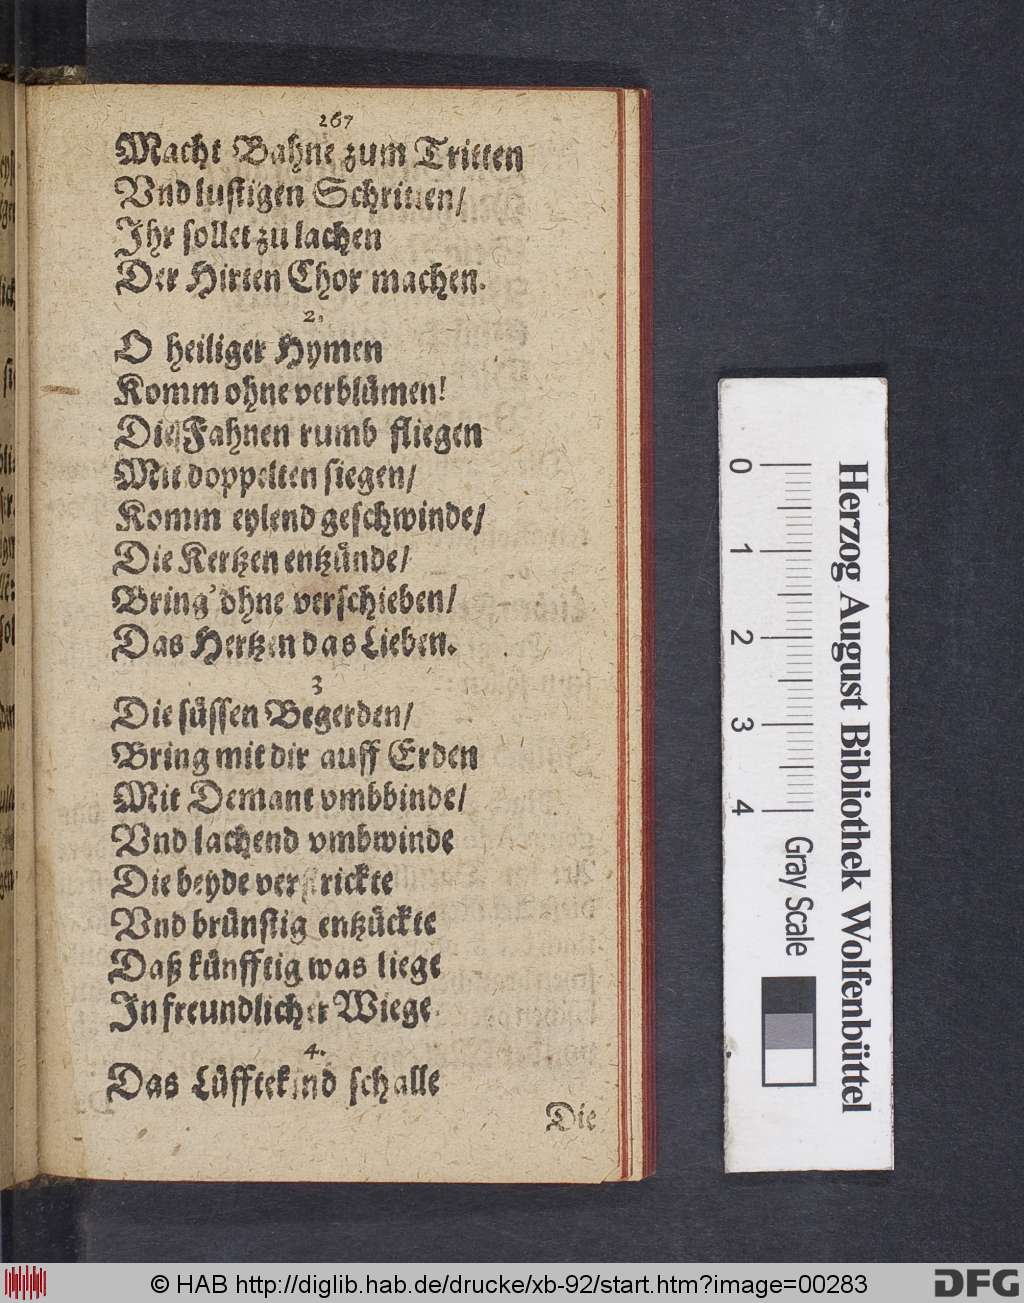 267
Macht Bahne zum Tritten
Vnd lustigen Schritten/
Ihr sollet zu lachen
Der Hirten Chor machen.
2.
O heiliger Hymen
Komm ohne verblümen!
Die Fahnen rumb fliegen
Mit doppelten siegen/
Komm eylend geschwinde/
Die Kertzen entzünde/
Bring' ohne verschieben/
Das Hertzen das Lieben.
3
Die süssen Begerden/
Bring mit dir auff Erden
Mit Demant vmbbinde/
Vnd lachend vmbwinde
Die beyde verstrickte
Vnd brünstig entzückte
Daß künfftig was liege
In freundlicher Wiege.
4.
Das Lüfftekind schalle
Die
Herzog August Bibliothek Wolfenbüttel
0 1 2 3 4 Gray Scale
© HAB http://diglib.hab.de/drucke/xb-92/start.htm?image=00283
DFG